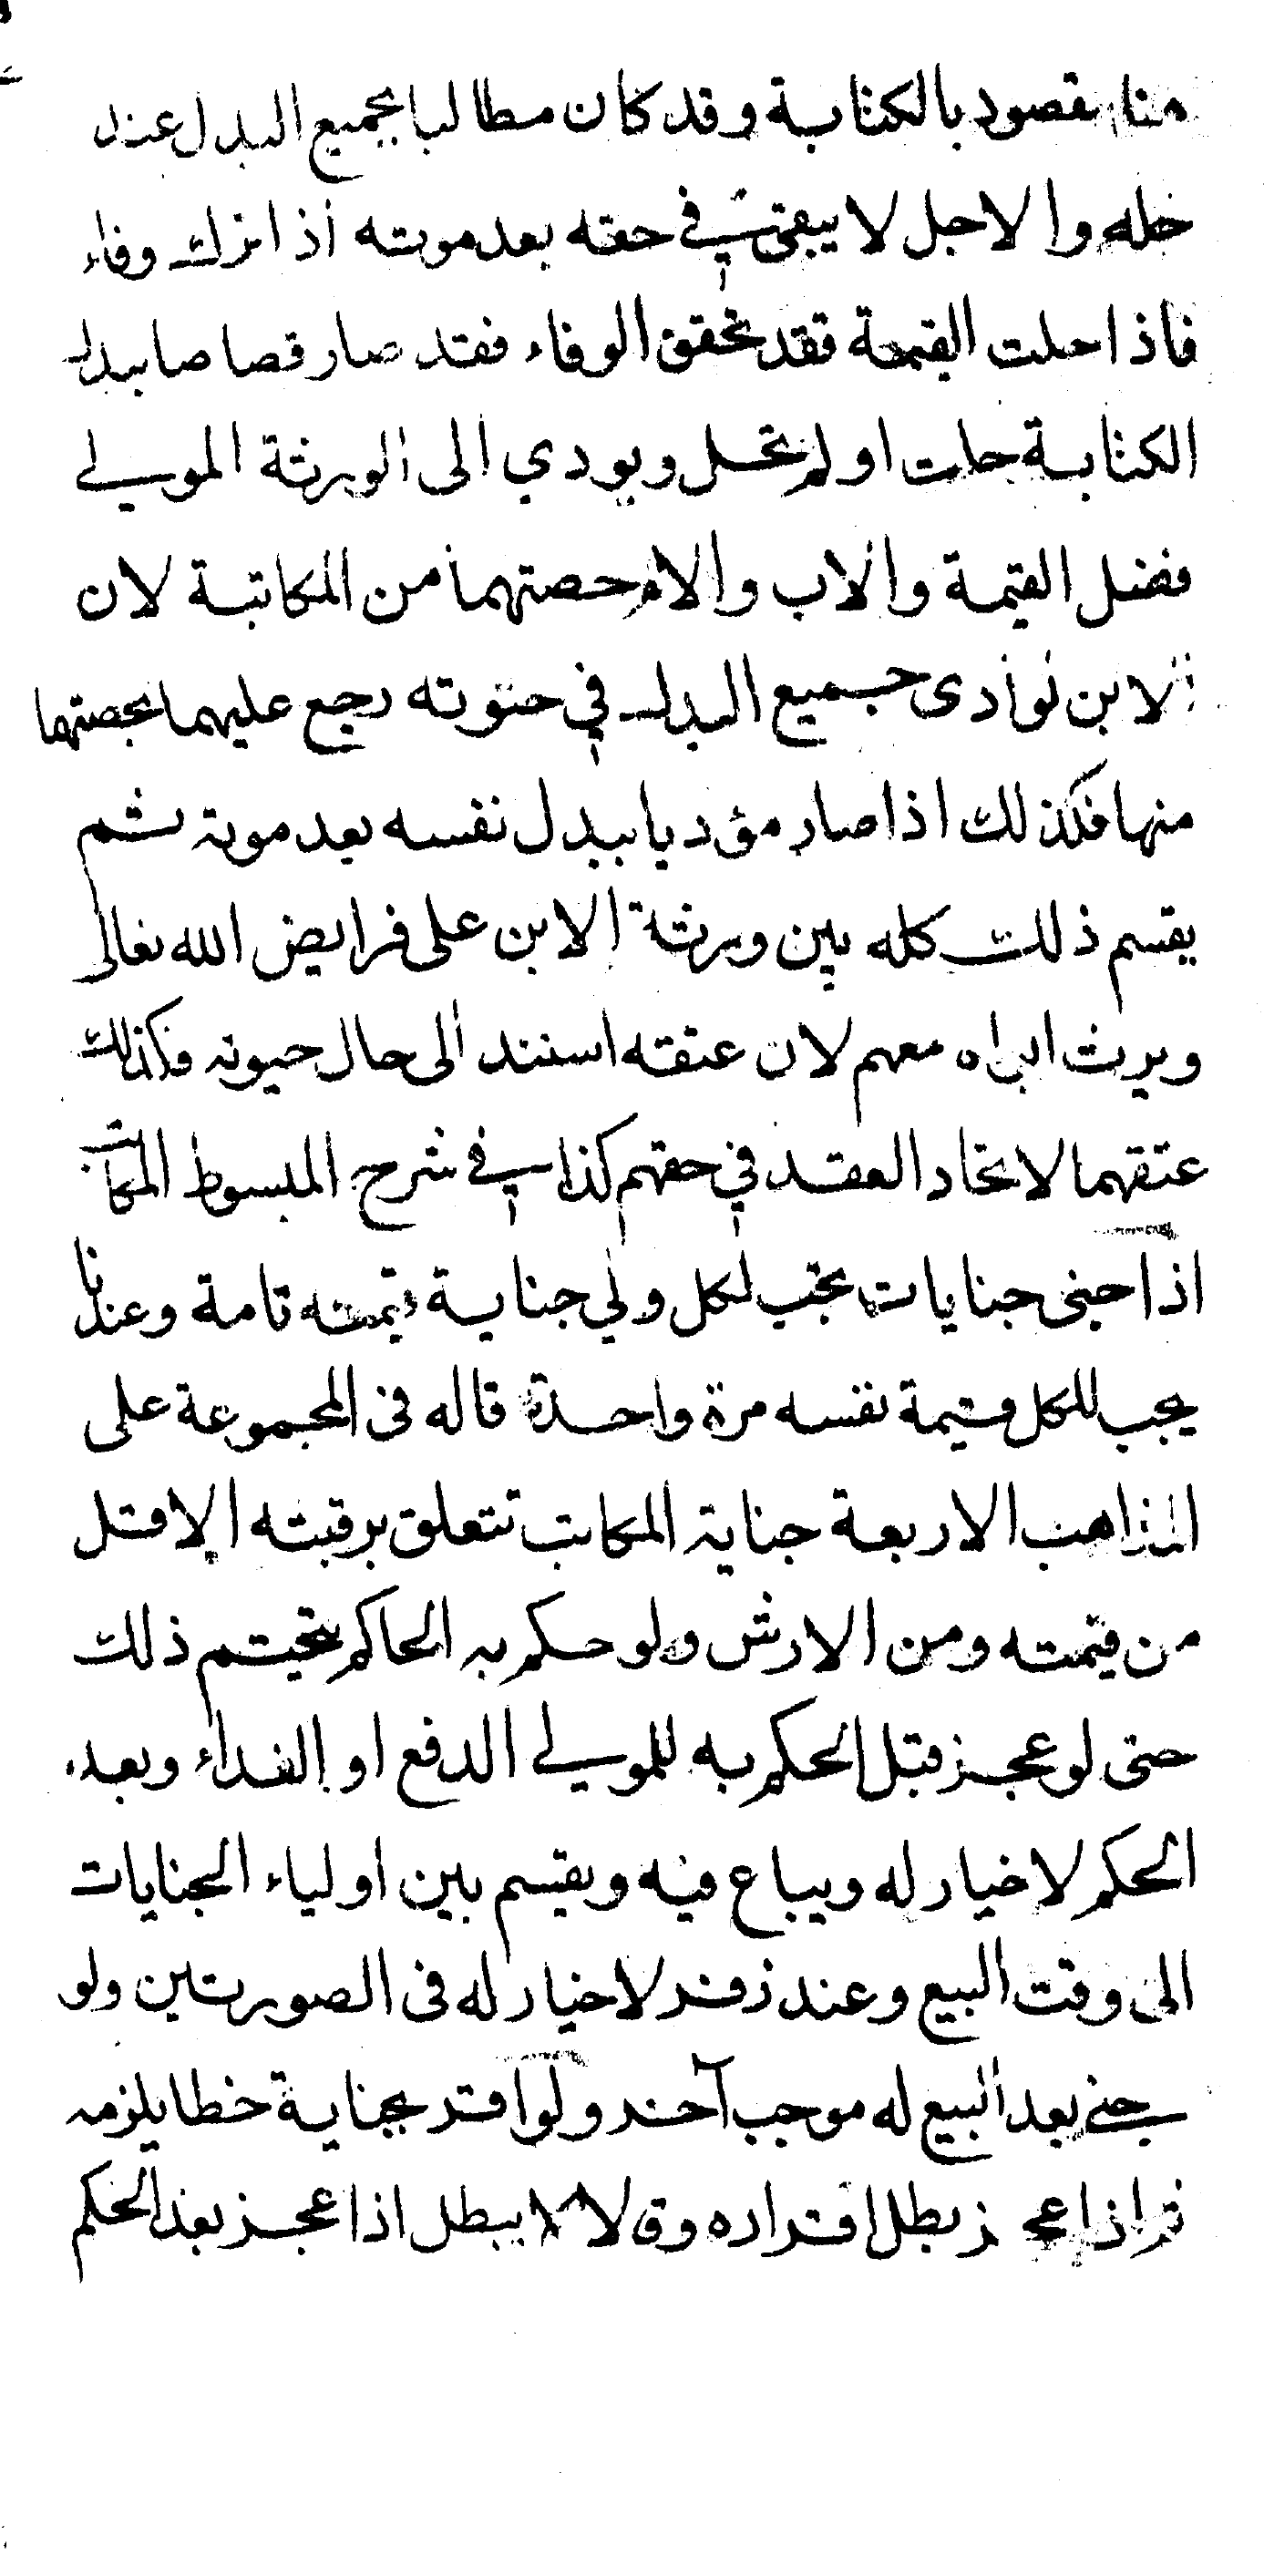 منا مقصود بالكتابة وقد كان مطالبا بجميع البدل عند
حله والاجل لا يبقى في حقه بعد موته اذا ترك وفاء
فاذا حلت القيمة فقد تحقق الوفاء فقد صار قصاصا ببدل
الكتابة حلت او لم تحل ويودي الى الورثة المولى
فضل القيمة والاب والام حصتهما من المكاتبة لان
الابن لو ادى جميع البدل في حيوته رجع عليهما بحصتهما
منها فكذلك اذا صار مؤديا ببدل نفسه بعد موته ثم
يقسم ذلك كله بين ورثة الابن على فرايض الله تعالى
ويرث ابواه معهم لان عتقه استند الى حال حيوته وكذلك
عتقهما لاتحاد العقد في حقهم كذا في شرح المبسوط المكاتب
اذا جنى جنايات يجب لكل ولي جناية قيمته تامة وعندنا
يجب للكل قيمة نفسه مرة واحدة قاله في المجموعة على
المذاهب الاربعة جناية المكاتب تتعلق برقبته الاقل
من قيمته ومن الارش ولو حكم به الحاكم يتحتم ذلك
حتى لو عجز قبل الحكم به للمولى الدفع او الفداء وبعد
الحكم لا خيار له ويباع فيه ويقسم بين اولياء الجنايات
الى وقت البيع وعند زفر لا خيار له في الصورتين ولو
جنى بعد البيع له موجب آخر ولو اقر بجناية خطا يلزمه
ثم اذا عجز بطل اقراره وق لا لا يبطل اذا عجز بعد الحكم